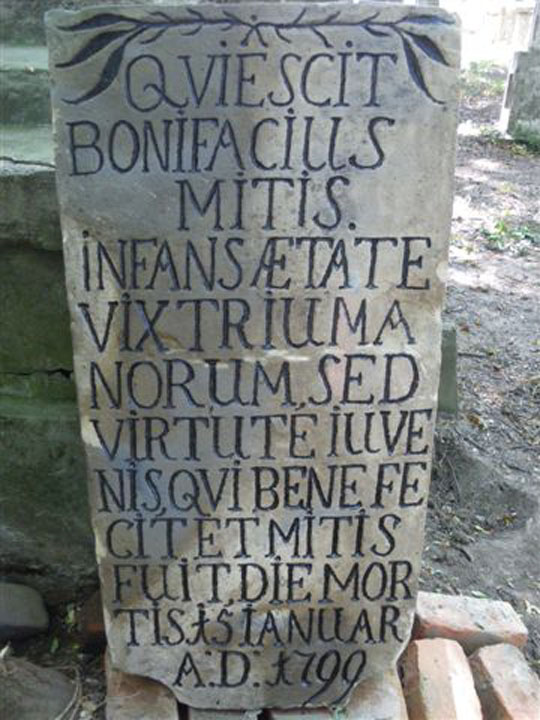 QVIESCIT
BONIFACIUS
MITIS.
INFANS ÆTATE
VIX TRIUM A
NORUM, SED
VIRTUTE IUVE
NIS, QVI BENE FE
CIT ET MITIS
FUIT, DIE MOR
TIS 15 IANUAR
A.D. 1799